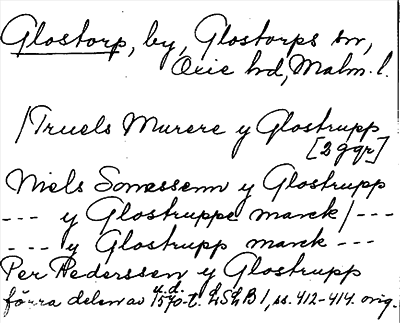 Glostorp, by, Glostorps sn,
Oxie hd, Malm. l.
/Truels Murere y Glostrupp
[2 ggr]
Niels Sonessenn y Glostrupp
--- y Glostruppe marck/---
--- y Glostrupp marck ---
Per Pederssen y Glostrupp
u.d.
förra delen av 1570-t. LSkB 1, ss. 412-414. orig.